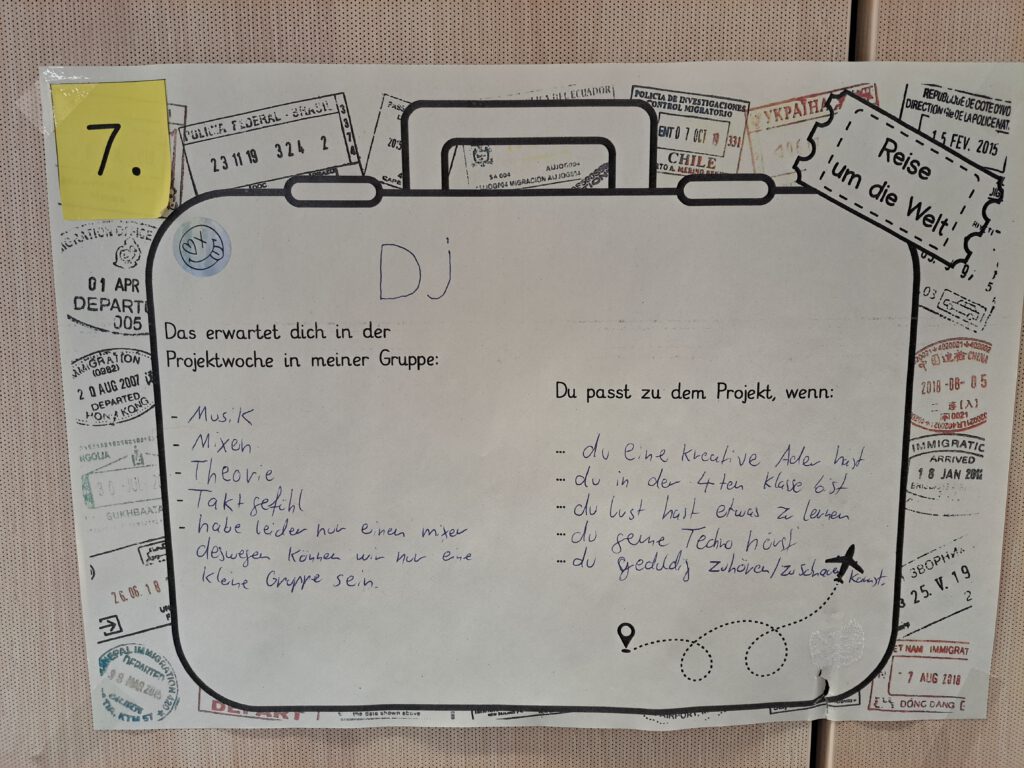 7.
POLICIA FEDERAL - BRASIL
23 11 19 324 2
POLICIA DE INVESTIGACIONES
CONTROL MIGRATORIO
CHILE
УКРАЇНА
REPUBLIQUE DE COTE D'IVO
15 FEV. 2015
Reise
um die Welt
DJ
01 APR
DEPART
005
Das erwartet dich in der
Projektwoche in meiner Gruppe:
- Musik
- Mixen
- Theorie
- Taktgefühl
- habe leider nur einen mixer
deswegen können wir nur eine
kleine Gruppe sein.
Du passt zu dem Projekt, wenn:
... du eine kreative Ader hast
... du in der 4ten Klasse bist
... du lust hast etwas zu lernen
... du gerne Techno hörst
... du geduldig zuhören/zuschauen kannst.
IMMIGRATION
(0982)
20 AUG 2007
DEPARTED
HONG KONG
2018-08-05
IMMIGRATIO
ARRIVED
18 JAN
SUKHBAATA
26.06.18
25. V. 19
NEPAL IMMIGRATION
DEPARTED
TIA, KTM 57
DEPART
the date shown above
ET NAM IMMIGRAT
- 7 AUG 2018
DONG DANG